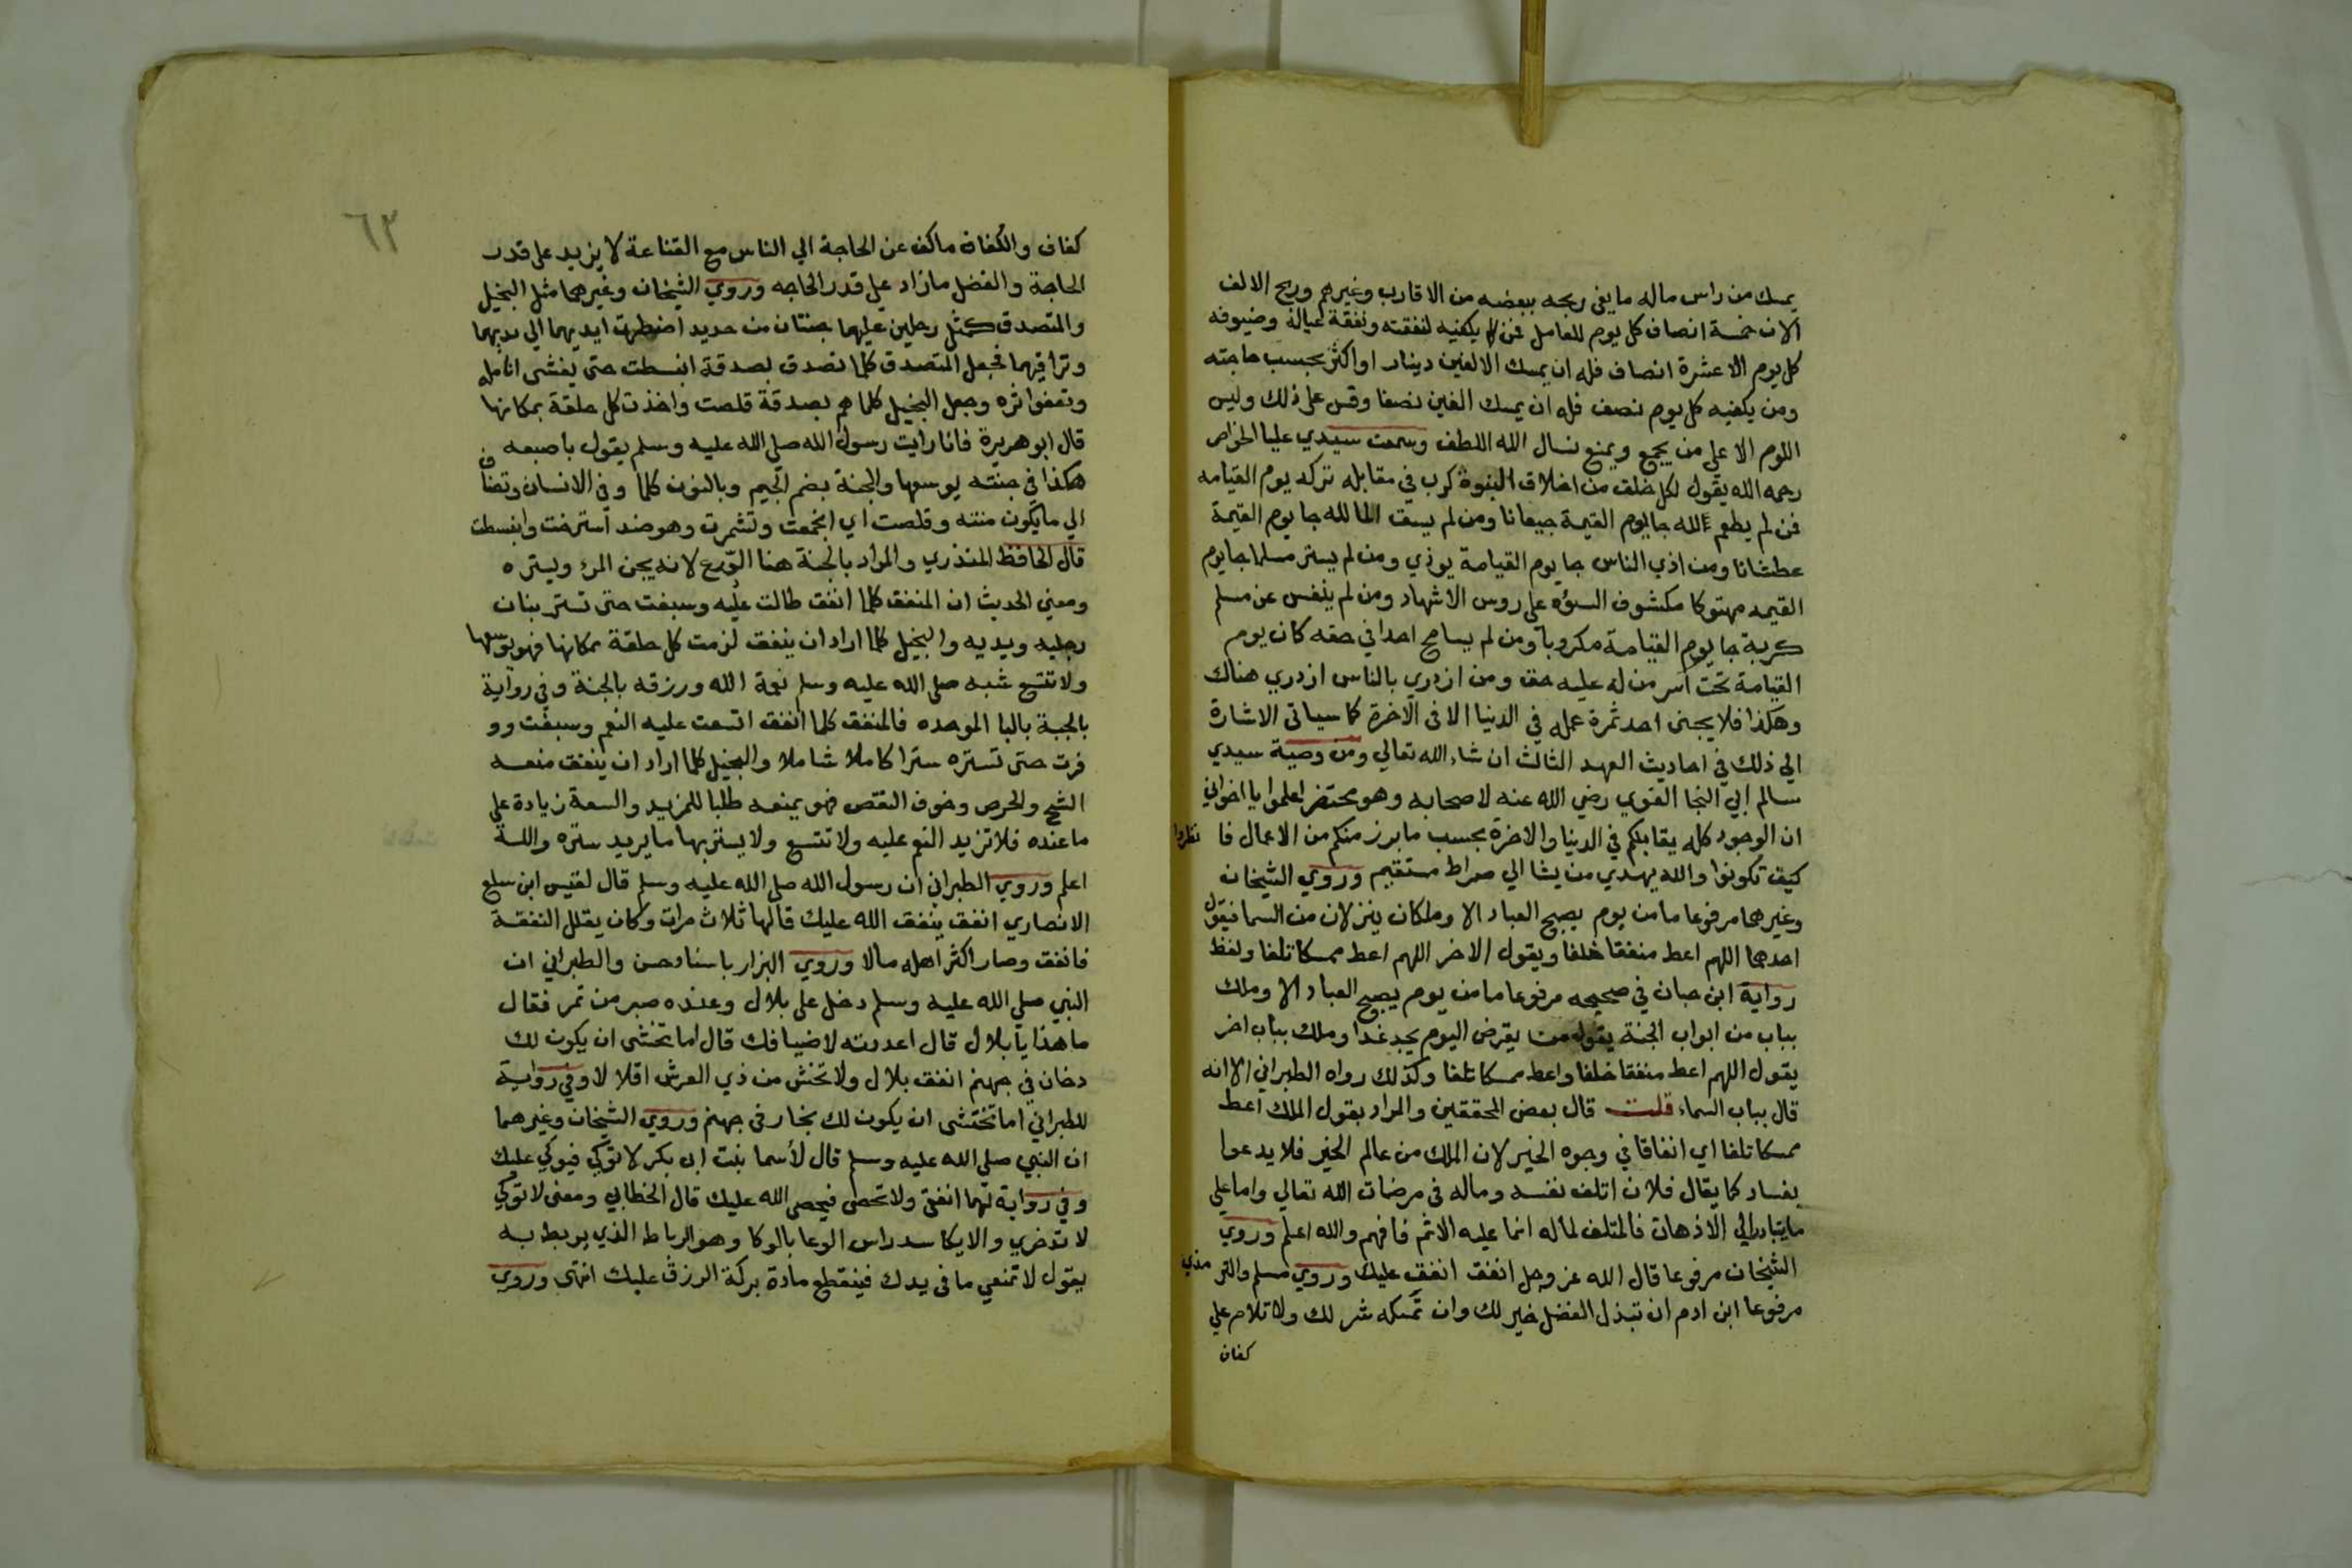 يمسك من راس ماله ما يفي ربحه ببعضه من الاقارب وغيرهم وربح الالف
الان خمسة انصاف كل يوم للعامل فمن لا يكفيه لنفقته ونفقة عياله وضيوفه
كل يوم الا عشرة انصاف فله ان يمسك الالفين دينار او اكثر بحسب حاجته
ومن يكفيه كل يوم نصف فله ان يمسك الفين نصفا وقس على ذلك وليس
اللوم الا على من يجمع ويمنع نسال الله اللطف وسمعت سيدي عليا الخواص
رحمه الله يقول لكل خلق من اخلاق النبوة كرب في مقابله تركه يوم القيامه
فمن لم يطعم لله جا يوم القيمة جيعانا ومن لم يسق الما لله جا يوم القيمة
عطشانا ومن اذي الناس جا يوم القيامة يوذي ومن لم يستر مسلما جا يوم
القيمه مهتوكا مكشوف السؤه على روس الاشهاد ومن لم ينفس عن مسلم
كربة جا يوم القيامة مكروبا ومن لم يسامح احدا في حقه كان يوم
القيامة تحت اسر من له عليه حق ومن ازدري بالناس ازدري هناك
وهكذا فلا يجني احد ثمرة عمله في الدنيا الا في الاخرة كما سياتي الاشارة
الي ذلك في احاديث العهد الثالث ان شاء الله تعالي ومن وصية سيدي
سالم ابي النجا الفوي رضي الله عنه لاصحابه وهو محتضر اعلموا يا اخواني
ان الوجود كله يقابلكم في الدنيا والاخرة بحسب ما برز منكم من الاعمال فا نظروا
كيف تكونوا والله يهدي من يشا الي صراط مستقيم وروي الشيخان
وغيرهما مرفوعا ما من يوم يصبح العباد الا وملكان ينزلان من السما فيقول
احدهما اللهم اعط منفقا خلفا ويقول الاخر اللهم اعط ممسكا تلفا ولفظ
رواية ابن حبان في صحيحه مرفوعا ما من يوم يصبح العباد الا وملك
بباب من ابواب الجنة يقول من يقرض اليوم يجد غدا وملك بباب اخر
يقول اللهم اعط منفقا خلفا واعط ممسكا تلفا وكذلك رواه الطبراني الا انه
قال بباب السماء قلت قال بعض المحققين والمراد بقول الملك اعط
ممسكا تلفا اي انفاقا في وجوه الخير لان الملك من عالم الخير فلا يدعوا
بفساد كما يقال فلان اتلف نفسه وماله في مرضات الله تعالي واما على
ما يتبادر الي الاذهان فالمتلف لماله انما عليه الاثم فافهم والله اعلم وروي
الشيخان مرفوعا قال الله عز وجل انفق انفق عليك وروي مسلم والتر مذي
مرفوعا ابن ادم ان تبذل الفضل خير لك وان تمسكه شر لك ولا تلام علي
كفاف
٦٣
كفاف والكفاف ما كف عن الحاجة الي الناس مع القناعة لا يزيد على قدر
الحاجة والفضل ما زاد على قدر الحاجه وروي الشيخان وغيرهما مثل البخيل
والمتصدق كمثل رجلين عليهما جنتان من حديد اضطرت ايديهما الي ثديهما
وتراقيهما فجعل المتصدق كلما تصدق بصدقة انبسطت حتى يغشى انامله
وتعفوا اثره وجعل البخيل كلما هم بصدقة قلصت واخذت كل حلقة بمكانها
قال ابو هريرة فانا رايت رسول الله صلى الله عليه وسلم يقول باصبعه
هكذا في جنته يوسعها والجنة بضم الجيم وبالنون كلما وقي الانسان وتضاف
الي ما يكون منته وقلصت اي انجمعت وتشمرت وهو ضد استرخت وانبسطت
قال الحافظ المنذري والمراد بالجنة هنا الدرع لانه يجن المرء ويستره
ومعني الحديث ان المنفق كلما انفق طالت عليه وسبغت حتى تستر بنان
رجليه ويديه والبخيل كلما اراد ان ينفق لزمت كل حلقة مكانها فهو يوسعها
ولا تتسع شبه صلى الله عليه وسلم نعمة الله ورزقه بالجنة وفي رواية
بالجبة بالبا الموحده فالمنفق كلما انفق اتسعت عليه النعم وسبغت وو
فرت حتى تستره سترا كاملا شاملا والبخيل كلما اراد ان ينفق منعه
الشح والحرص وخوف النقص فهو يمنعه طلبا للمزيد والسعة زيادة علي
ما عنده فلا تزيد النعم عليه ولا تتسع ولا يستر بها ما يريد ستره والله
اعلم وروي الطبراني ان رسول الله صلى الله عليه وسلم قال لقيس ابن سلع
الانصاري انفق ينفق الله عليك قالها ثلاث مرات وكان يقلل النفقة
فانفق وصار اكثر اهله مالا وروي البزار باسناد حسن والطبراني ان
النبي صلي الله عليه وسلم دخل على بلال وعنده صبر من تمر فقال
ما هذا يا بلال قال اعددته لاضيافك قال اما تخشى ان يكون لك
دخان في جهنم انفق بلال ولا تخش من ذي العرش اقلالا وفي رواية
للطبراني اما تخشى ان يكون لك بخار في جهنم وروي الشيخان وغيرهما
ان النبي صلي الله عليه وسلم قال لأسما بنت ابي بكر لا توكي فيوكي عليك
وفي رواية لهما انفقي ولا تحصي فيحصي الله عليك قال الخطابي ومعنى لا توكي
لا تدخري والايكا سد راس الوعا بالوكا وهو الرباط الذي يربط به
يقول لا تمنعي ما في يدك فينقطع مادة بركة الرزق عليك انتهى وروي